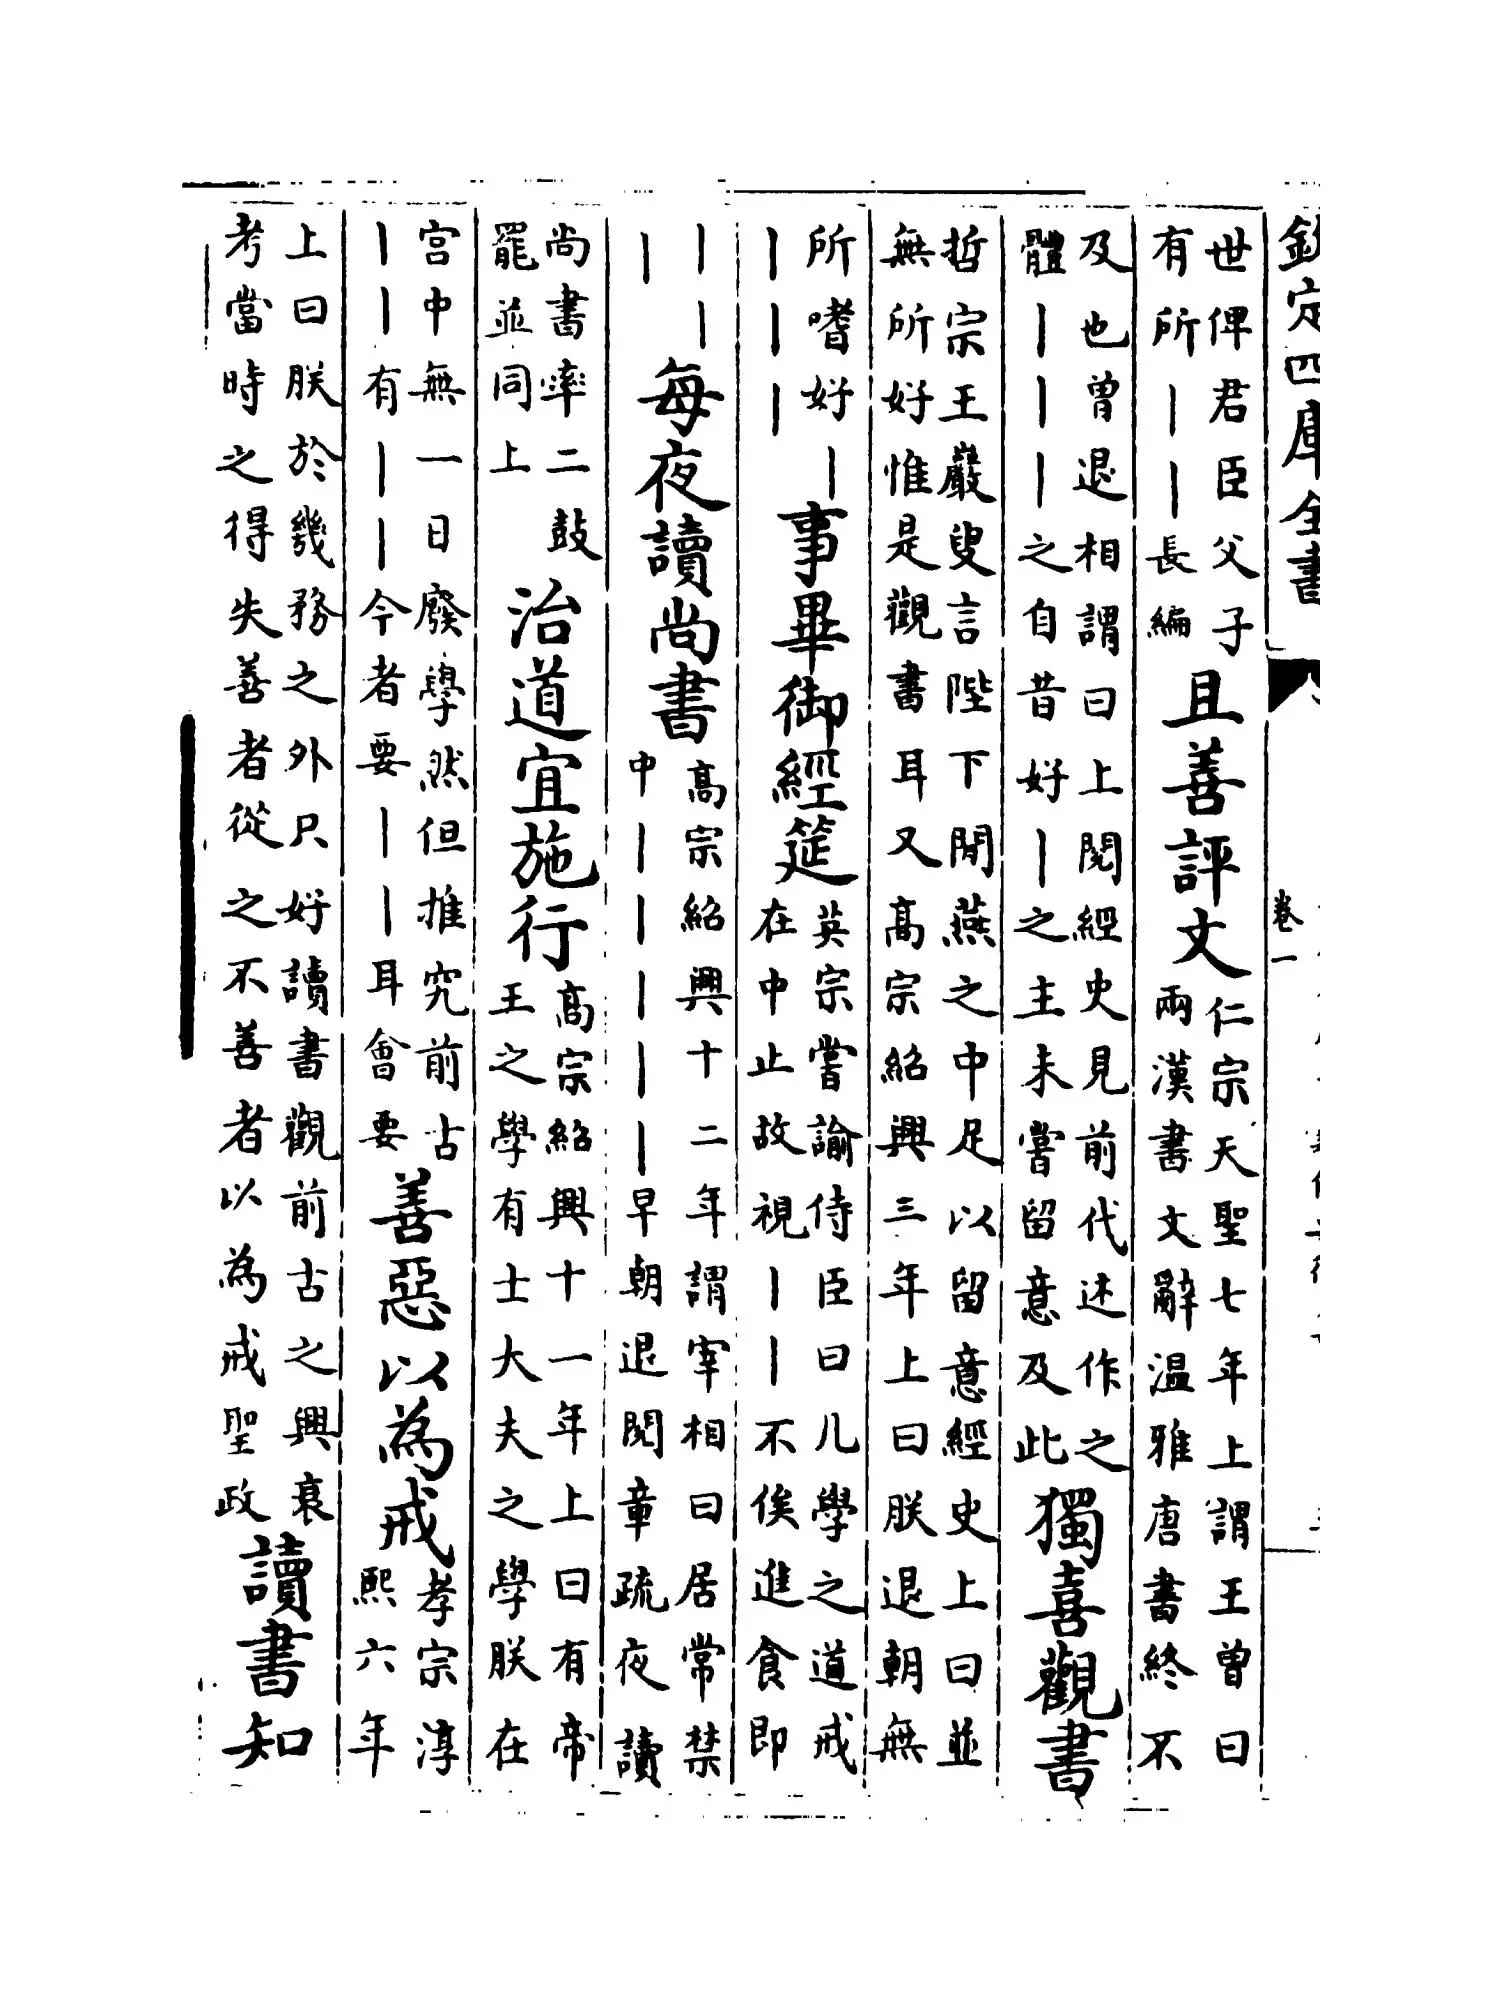 欽定四庫全書
卷一
世俾君臣父子
有所｜｜長編
且善評文
仁宗天聖七年上謂王曾曰
兩漢書文辭温雅唐書終不
及也曾退相謂曰上閱經史見前代述作之
體｜｜｜之自昔好｜之主未嘗留意及此
獨喜觀書
哲宗王巖叟言陛下閒燕之中足以留意經史上曰並
無所好惟是觀書耳又高宗紹興三年上曰朕退朝無
所嗜好｜
｜｜｜
事畢御經筵
英宗嘗諭侍臣曰儿學之道戒
在中止故視｜｜不俟進食即
｜｜
｜
每夜讀尚書
高宗紹興十二年謂宰相曰居常禁
中｜｜｜｜｜早朝退閱章疏夜讀
尚書率二鼓
罷並同上
治道宜施行
高宗紹興十一年上曰有帝
王之學有士大夫之學朕在
宫中無一日廢學然但推究前古
｜｜有｜｜今者要｜｜耳會要
善惡以為戒
孝宗淳
熙六年
上曰朕於幾務之外只好讀書觀前古之興衰
考當時之得失善者從之不善者以為戒聖政
讀書知